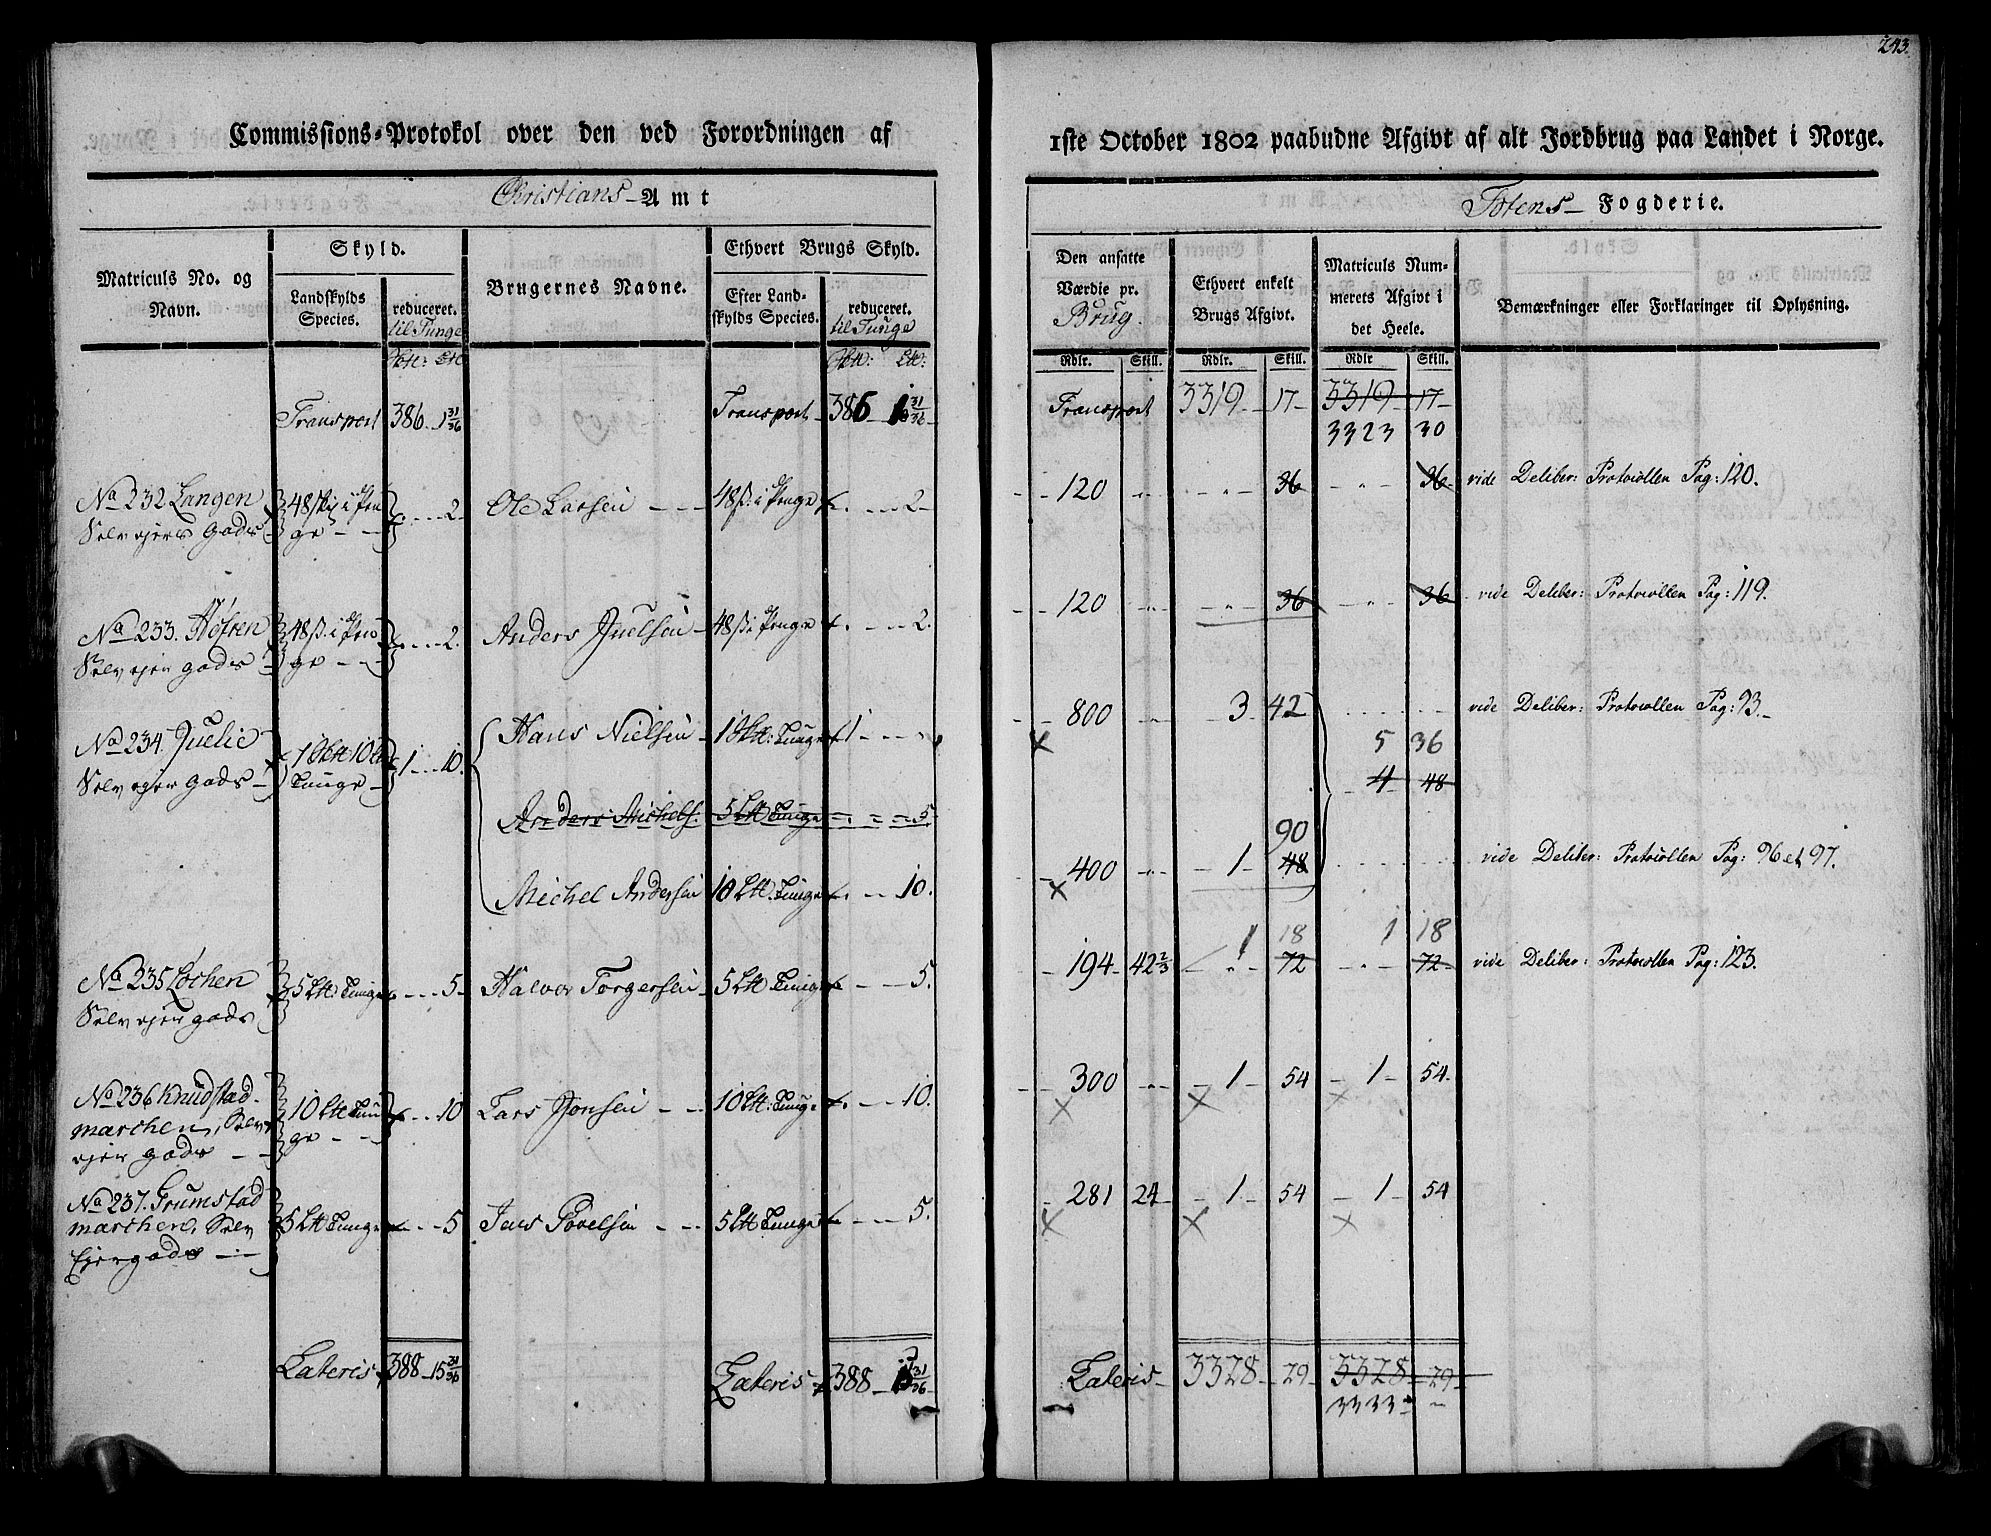 243.
Commissions-Protokol over den ved Forordningen af
1ste October 1802 paabudne Afgivt af alt Jordbrug paa Landet i Norge.
Christians - Amt
Totens - Fogderie.
Matriculs No. og Navn.
Skyld.
Landskylds Species.
reduceret. til Tunge
Brugernes Navne.
Ethvert Brugs Skyld.
Efter Landskylds Species.
reduceret. til Tunge
Den ansatte Værdie pr. Brug.
Ethvert enkelt Brugs Afgivt.
Matriculs Nummerets Afgivt i det Heele.
Bemærkninger eller Forklaringer til Oplysning.
Rdlr. Skill. Rdlr. Skill. Rdlr Skill.
Transport 386. 1 31/36 Transport 386 1 31/36 Transport 3319 17 3319 17
3323 30
No 232 Langen 48 ski Pen 2 Ole Larsen 48 ß. i Penge 2 120 36 36 vide Deliber: Protocollen Pag: 120.
Selvejer Gods ge
No 233. 48 ß. i Pen 2. Anders Juelsen 48 ß i Penge 2. 120 36 36 vide Deliber: Protocollen Pag: 119.
Selvejer gods ge
No 234. Juelie 1 10 1 10. Hans Nielsen 1 Tunge 1 800 3 42 vide Deliber: Protocollen Pag: 93.
Selvejer gods Tunge 5 36
4 48
Anders Michels. 5 Ltt Tunge 5
90
Michel Andersen 10 Ltt. Tunge 10. 400 1 48 vide Deliber: Protocollen Pag: 96 et 97.
1 18 1 18
No 235 Lochen 5 Ltt: Tunge 5 Halvor Torgersen 5 Ltt Tunge 5. 194 42 2/3 72 72 vide Deliber: Protocollen Pag: 123.
Selvejer gods
No 236 Knudstad 10 Ltt Tun 10 Lars Jonsen 10 Ltt: Tunge 10. 300 1 54 1 54
marchen, Selv ge
ejer gods
No 237. Grumstad
marchen, Selv 5 Ltt Tunge 5 Jens Povelsen 5 Ltt Tunge 5. 281 24 1 54 1 54
Ejergods
Lateris 388 15 31/36 Lateris 388 31/36 Lateris 3328 29 3328 29
3333